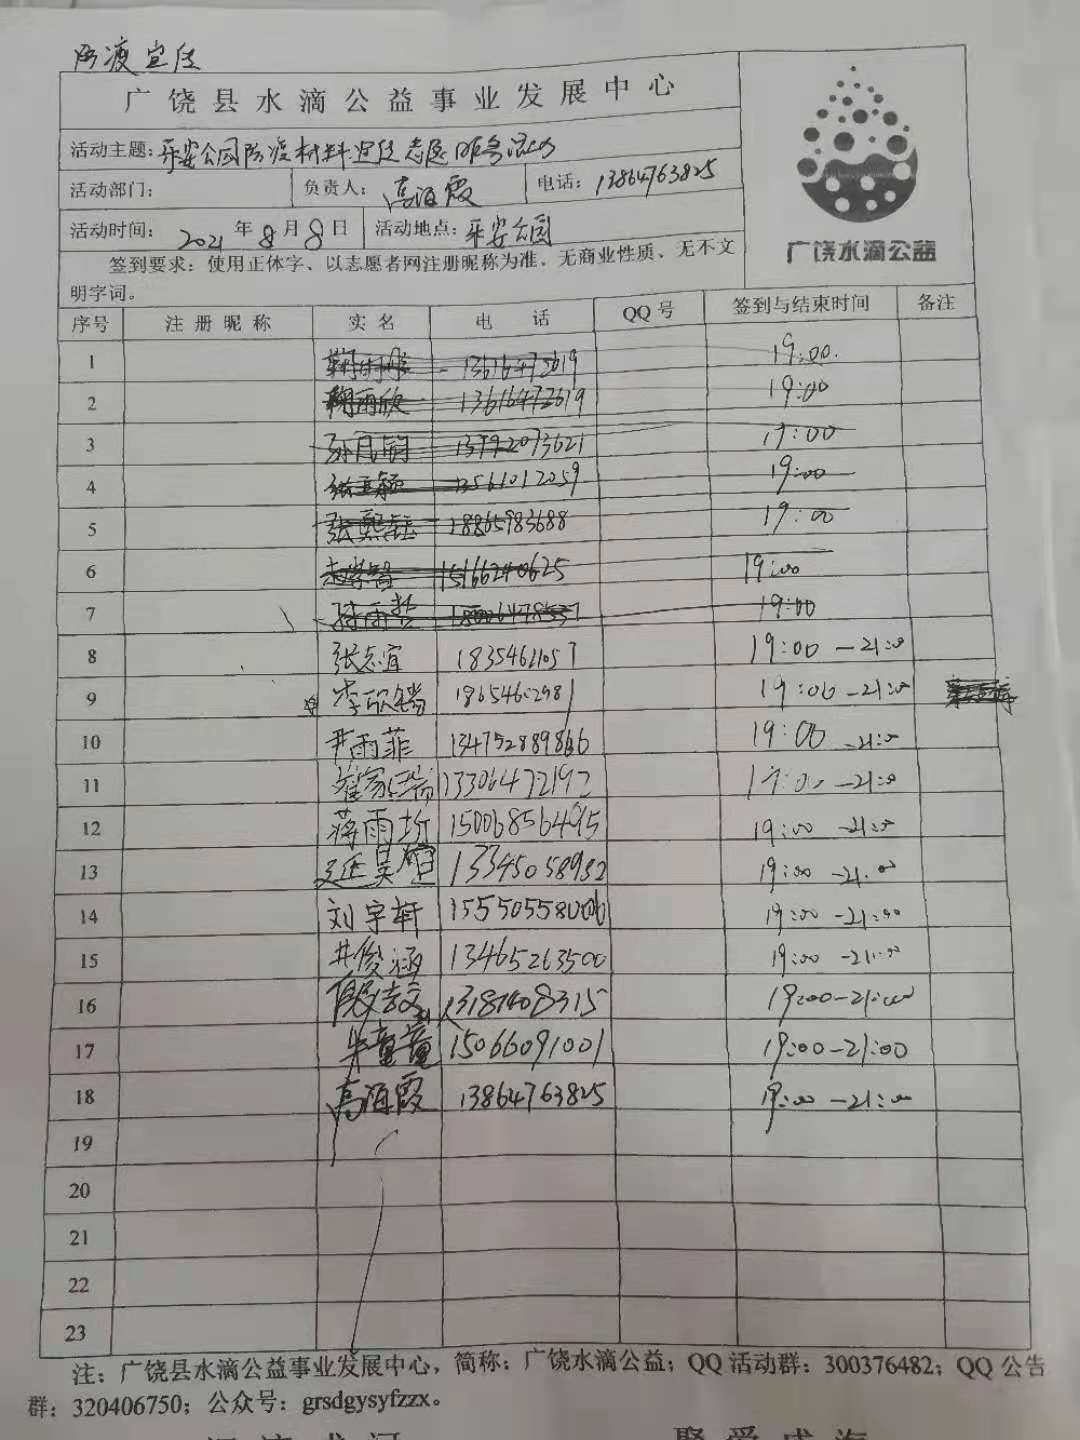 防渡宣传
广饶县水滴公益事业发展中心
广饶水滴公益
活动主题:平安公园防渡材料宣传志愿服务活动
活动部门: 负责人:高海霞 电话:13864763825
活动时间: 2021年8月8日 活动地点:平安公园
签到要求:使用正体字、以志愿者网注册昵称为准、无商业性质、无不文
明字词。
序号 注册昵称 实名 电话 QQ号 签到与结束时间 备注
1 19:00.
2 雨欣 13616472619 19:00
3 孙凡 13792073621 19:00
4 13561012059 19:00
5 张熙钰 18865983688 19:00
6 15166240625 19:00
7 雨哲 19:00
8 张志宜 18354621057 19:00-21:00
9 李欣 18654602981 19:00-21:00
10 尹雨菲 19:00-21:00
11 13306472192 19:00-21:00
12 蒋雨圻 15006856495 19:00-21:00
13 延昊 13345058932 19:00-21:00
14 刘宇轩 19:00-21:00
15 井俊涵 13465263500 19:00-21:00
16 13181408315 19:00-21:00
17 牛童童 15066091001 19:00-21:00
18 高海霞 13864763825 19:00-21:00
19
20
21
22
23
注:广饶县水滴公益事业发展中心,简称:广饶水滴公益;QQ活动群:300376482;QQ公告
群:320406750;公众号:grsdgysyfzzx。
聚爱成海